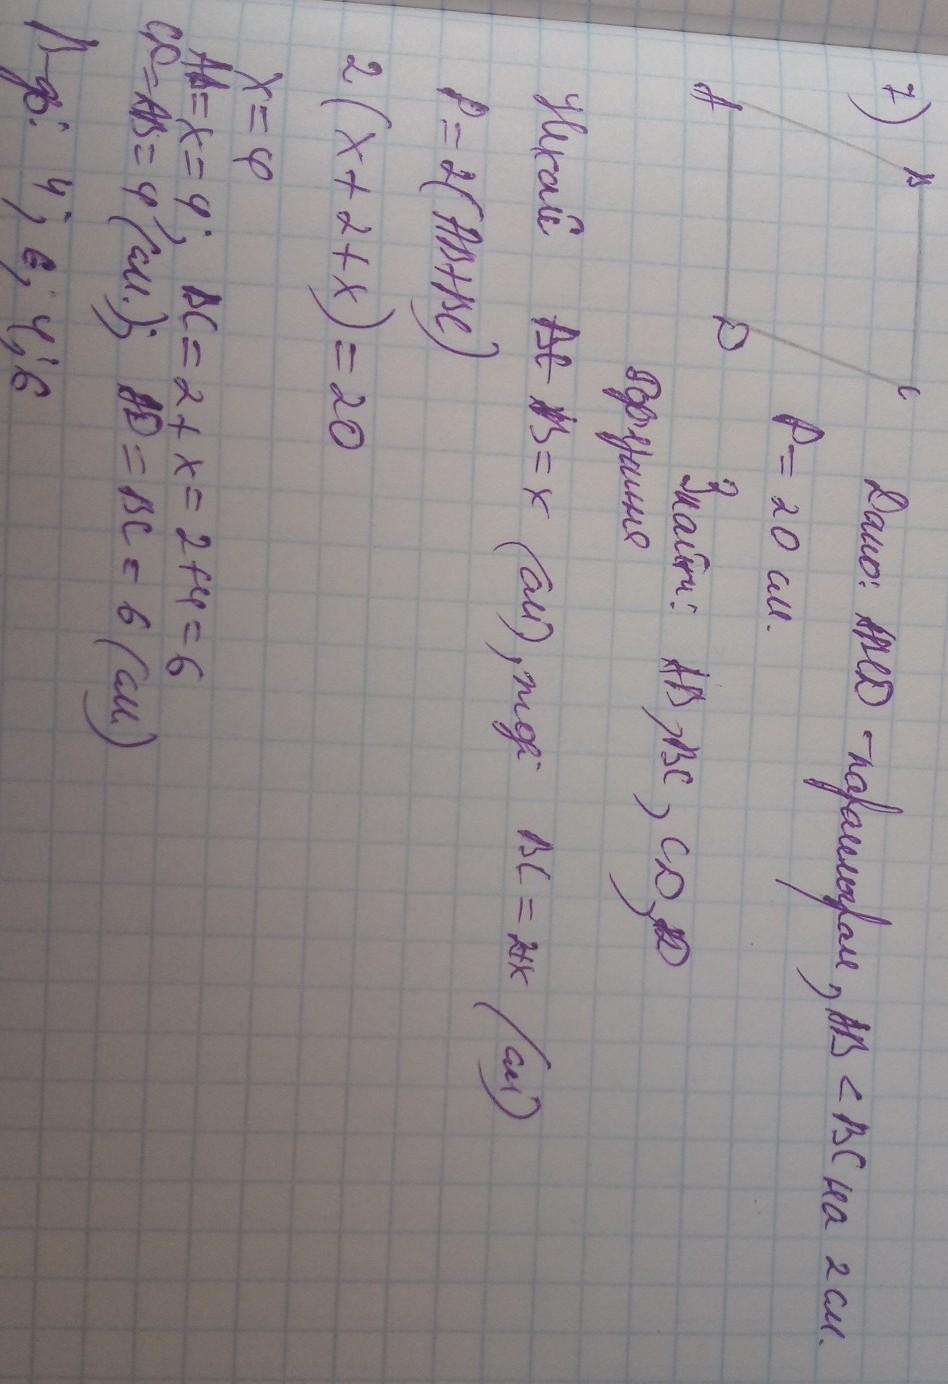 7)
A B C D
Дано: ABCD - паралелограм, AB < BC на 2 см.
P = 20 см.
Знайти: AB, BC, CD, AD
Розв'язання
Нехай AB = x (см), тоді BC = 2+x (см)
P = 2(AB+BC)
2(x+2+x) = 20
x = 4
AB = x = 4; BC = 2+x = 2+4 = 6
CD = AB = 4 (см.); AD = BC = 6 (см.)
В-дь: 4; 6; 4; 6